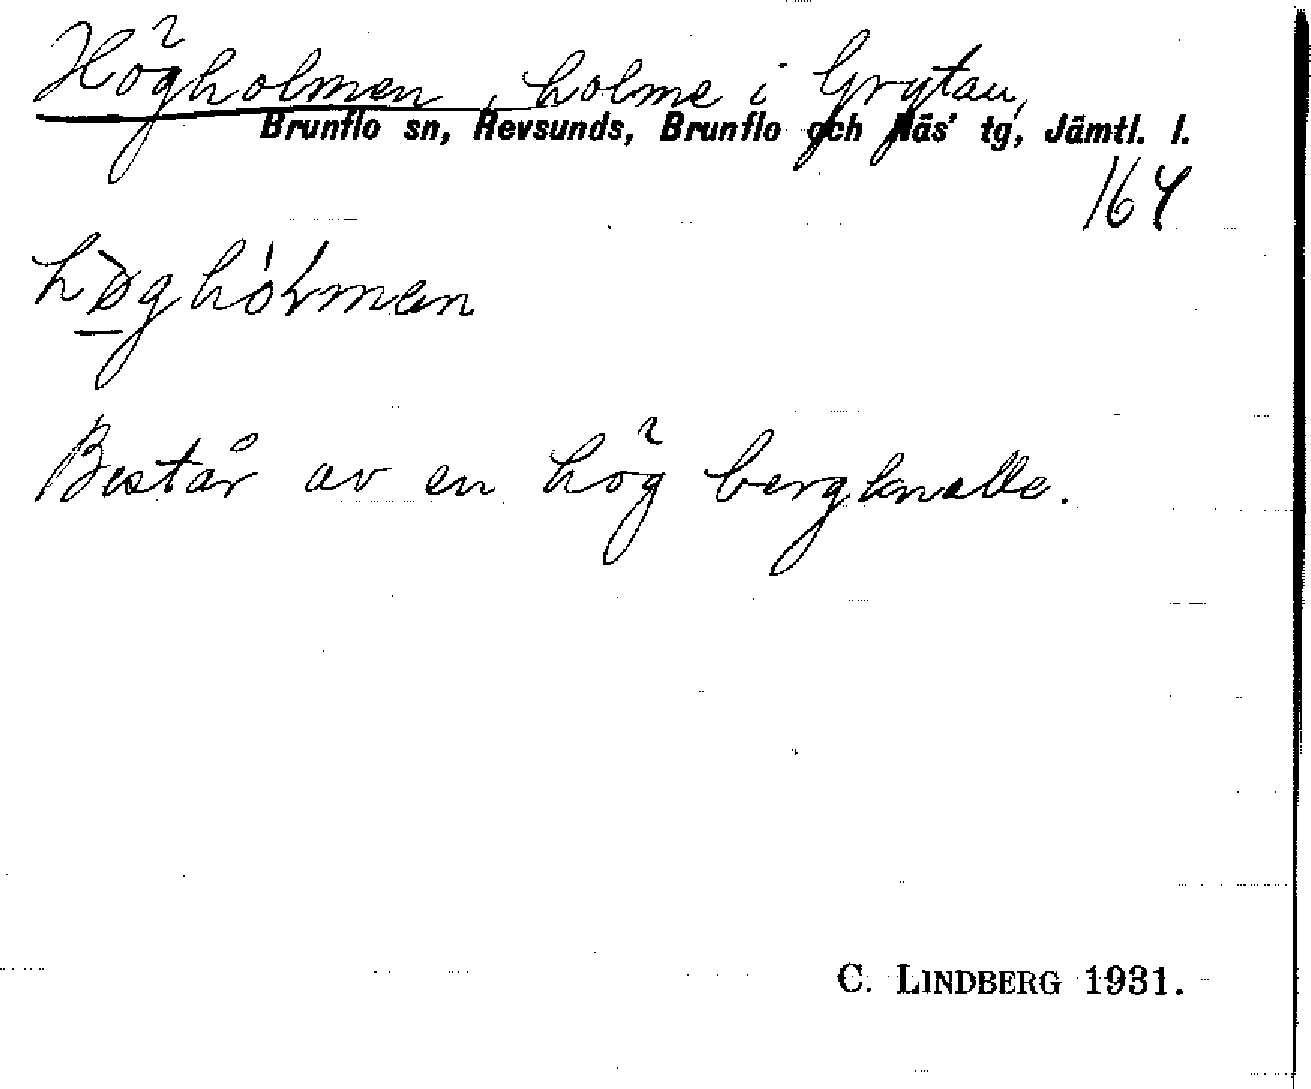 Högholmen, holme i Grytan,
Brunflo sn, Revsunds, Brunflo och Näs' tg, Jämtl. l.
164
Består av en hög bergknalle.
C. LINDBERG 1931.